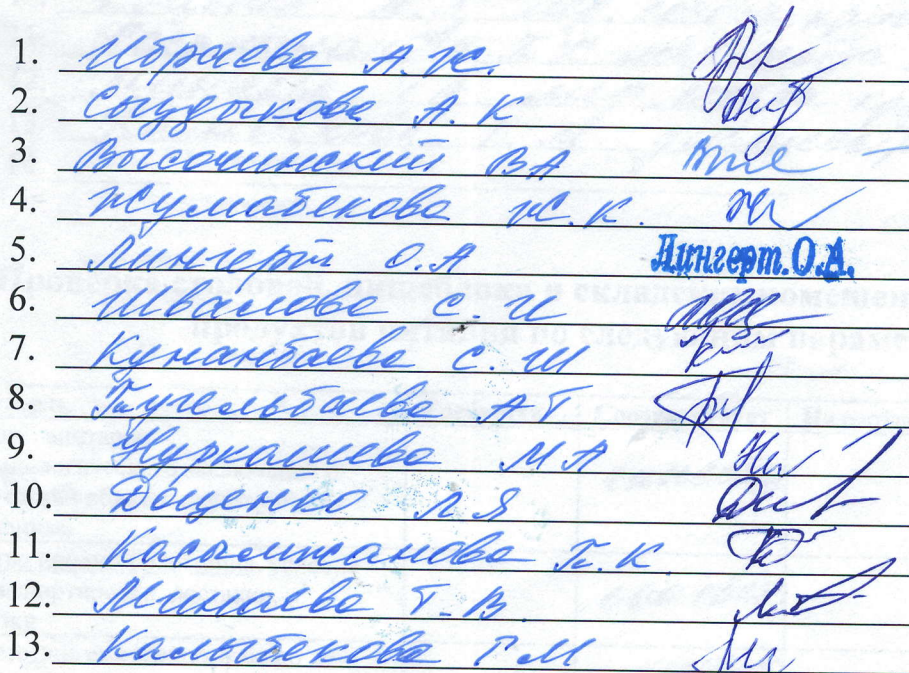 1. Ибраева А.Ж.
2. Сыздыкова А. К
3. Высочинский ВА
4. Жумабекова Ж. К.
5. Лингерт О.А Лингерт. О.А.
6. Швалова С. И
7. Кунанбаева С. Ш
8. Тугельбаева АТ
9. Нуркашева М А
10. Доценко Л Я
11. Касымжанова Г. К.
12. Минаева Т. В.
13. Калыбекова Г М